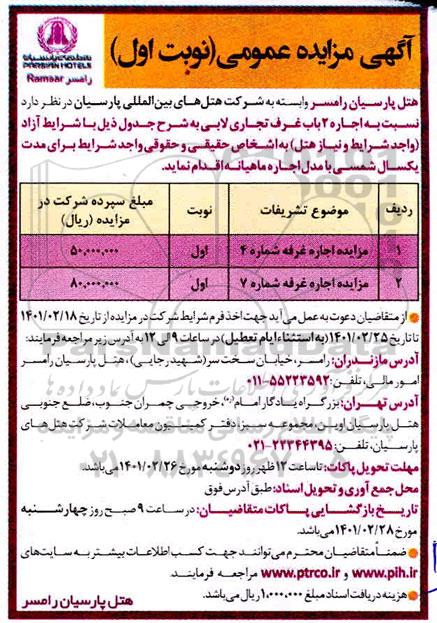 آگهی مزایده عمومی (نوبت اول)
هتل‌های پارسیان
PARSIAN HOTELS
رامسر Ramsar
هتل پارسیان رامسر وابسته به شرکت هتل‌های بین‌المللی پارسیان در نظر دارد
نسبت به اجاره ۲ باب غرف تجاری لابی به شرح جدول ذیل با شرایط آزاد
(واجد شرایط و نیاز هتل) به اشخاص حقیقی و حقوقی واجد شرایط برای مدت
یکسال شمسی با مدل اجاره ماهیانه اقدام نماید.
ردیف موضوع تشریفات نوبت مبلغ سپرده شرکت در مزایده (ریال)
۱ مزایده اجاره غرفه شماره ۴ اول ۵۰,۰۰۰,۰۰۰
۲ مزایده اجاره غرفه شماره ۷ اول ۸۰,۰۰۰,۰۰۰
از متقاضیان دعوت به عمل می‌آید جهت اخذ فرم شرایط شرکت در مزایده از تاریخ ۱۴۰۱/۰۲/۱۸
تا تاریخ ۱۴۰۱/۰۲/۲۵ (به استثناء ایام تعطیل) در ساعات ۹ الی ۱۲ به آدرس زیر مراجعه فرمایند:
آدرس مازندران: رامسر، خیابان سخت سر (شهید رجایی)، هتل پارسیان رامسر
امور مالی، تلفن: ۵۵۲۲۳۵۹۲-۰۱۱
آدرس تهران: بزرگراه یادگار امام (ره)، خروجی چمران جنوب، ضلع جنوبی
هتل پارسیان اوین، مجموعه سبز، دفتر کمیسیون معاملات شرکت هتل های
پارسیان، تلفن: ۲۲۳۴۴۳۹۵-۰۲۱
مهلت تحویل پاکات: تا ساعت ۱۲ ظهر روز دوشنبه مورخ ۱۴۰۱/۰۲/۲۶ می‌باشد.
محل جمع آوری و تحویل اسناد: طبق آدرس فوق
تاریخ بازگشایی پاکات متقاضیان: در ساعت ۹ صبح روز چهارشنبه
مورخ ۱۴۰۱/۰۲/۲۸ می‌باشد.
ضمناً متقاضیان محترم می‌توانند جهت کسب اطلاعات بیشتر به سایت‌های
www.pih.ir و www.ptrco.ir مراجعه فرمایند.
هزینه دریافت اسناد مبلغ ۱,۰۰۰,۰۰۰ ریال می‌باشد.
هتل پارسیان رامسر